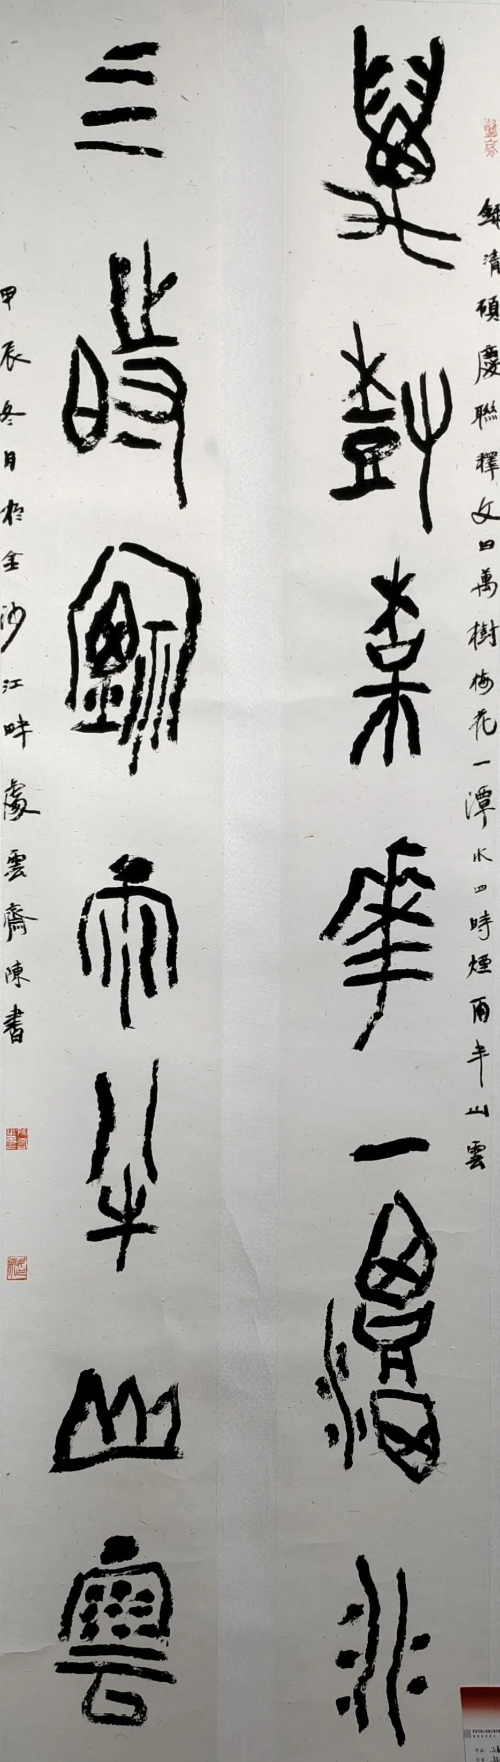 錄清碩慶聯釋文曰萬樹梅花一潭水四時煙雨半山雲
萬樹梅花一潭水
四時煙雨半山雲
甲辰冬月於金沙江畔雲齋陳書